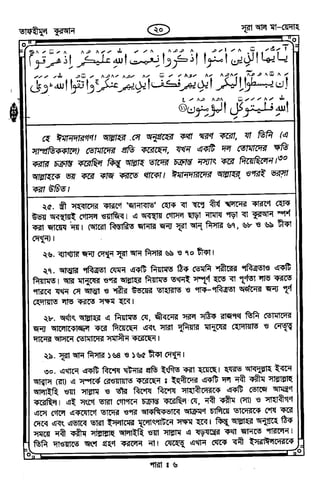 তাফহীমুল কুরআন
২০
সূরা আল মা-য়েদাহ
يٰٓاَيُّهَا الَّذِيْنَ اٰمَنُوا اذْكُرُوْا نِعْمَتَ اللّٰهِ عَلَيْكُمْ اِذْ هَمَّ قَوْمٌ
اَنْ يَّبْسُطُوْٓا اِلَيْكُمْ اَيْدِيَهُمْ فَكَفَّ اَيْدِيَهُمْ عَنْكُمْ وَاتَّقُوا اللّٰهَ وَعَلَى
اللّٰهِ فَلْيَتَوَكَّلِ الْمُؤْمِنُوْنَ
হে ঈমানদারগণ! আল্লাহর সে অনুগ্রহের কথা স্মরণ করো, যা তিনি (এ
সাম্প্রতিককালে) তোমাদের প্রতি করেছেন, যখন একটি দল তোমাদের ক্ষতি
করার চক্রান্ত করেছিল কিন্তু আল্লাহ তাদের চক্রান্ত নস্যাৎ করে দিয়েছিলেন।৩০
আল্লাহকে ভয় করে কাজ করতে থাকো। ঈমানদারদের আল্লাহর ওপরই ভরসা
করা উচিত।
২৫. স্ত্রী সহবাসের কারণে 'জানাবাত' হোক বা স্বপ্নে বীর্য স্খলনের কারণে হোক
উভয় অবস্থায়ই গোসল ওয়াজিব। এ অবস্থায় গোসল ছাড়া নামায পড়া বা কুরআন স্পর্শ
করা জায়েয নয়। (আরো বিস্তারিত জানার জন্য সূরা আন্ নিসার ৬৭, ৬৮ ও ৬৯ টীকা
দেখুন)।
২৬. ব্যাখ্যার জন্য দেখুন সূরা আন নিসার ৬৯ ও ৭০ টীকা।
২৭. আত্মার পবিত্রতা যেমন একটি নিয়ামত ঠিক তেমনি শরীরের পবিত্রতাও একটি
নিয়ামত। আর মানুষের ওপর আল্লাহর নিয়ামত তখনই সম্পূর্ণ হতে বা পূর্ণতা লাভ করতে
পারবে যখন সে আত্মা ও শরীর উভয়ের তাহারাত ও পাক-পবিত্রতা অর্জনের জন্য পূর্ণ
হেদায়াত লাভ করতে সক্ষম হবে।
২৮. অর্থাৎ আল্লাহর এ নিয়ামত যে, জীবনের সরল সঠিক রাজপথ তিনি তোমাদের
জন্য আলোকোজ্জল করে দিয়েছেন এবং সারা দুনিয়ার মানুষের হেদায়াত ও নেতৃত্ব
দানের আসনে তোমাদের সমাসীন করেছেন।
২৯. সূরা আন নিসার ১৬৪ ও ১৬৫ টীকা দেখুন।
৩০. এখানে একটি বিশেষ ঘটনার প্রতি ইংগিত করা হয়েছে। হযরত আবদুল্লাহ ইবনে
আব্বাস (রা) এ সম্পর্কে রেওয়ায়াত করেছেন ঃ ইহুদীদের একটি দল নবী করীম সাল্লাল্লাহু
আলাইহি ওয়া সাল্লাম ও তাঁর বিশেষ বিশেষ সাহাবীদেরকে একটি ভোজে আমন্ত্রণ
করেছিল। এই সংগে তারা গোপনে চক্রান্ত করেছিল যে, নবী করীম (সা) ও সাহাবীগণ
এসে গেলে একযোগে তাদের ওপর আকস্মিকভাবে আক্রমণ চালিয়ে তাদেরকে শেষ করে
দেবে এবং এভাবে তারা ইসলামের মূলোৎপাটনে সক্ষম হবে। কিন্তু আল্লাহর অনুগ্রহে ঠিক
সময়ে নবী করীম সাল্লাল্লাহু আলাইহি ওয়া সাল্লাম এ ষড়যন্ত্রের কথা জানতে পারলেন।
তিনি দাওয়াতে অংশ গ্রহণ করলেন না। যেহেতু এখান থেকে বনী ইসরাঈলদেরকে
পারা ঃ ৬